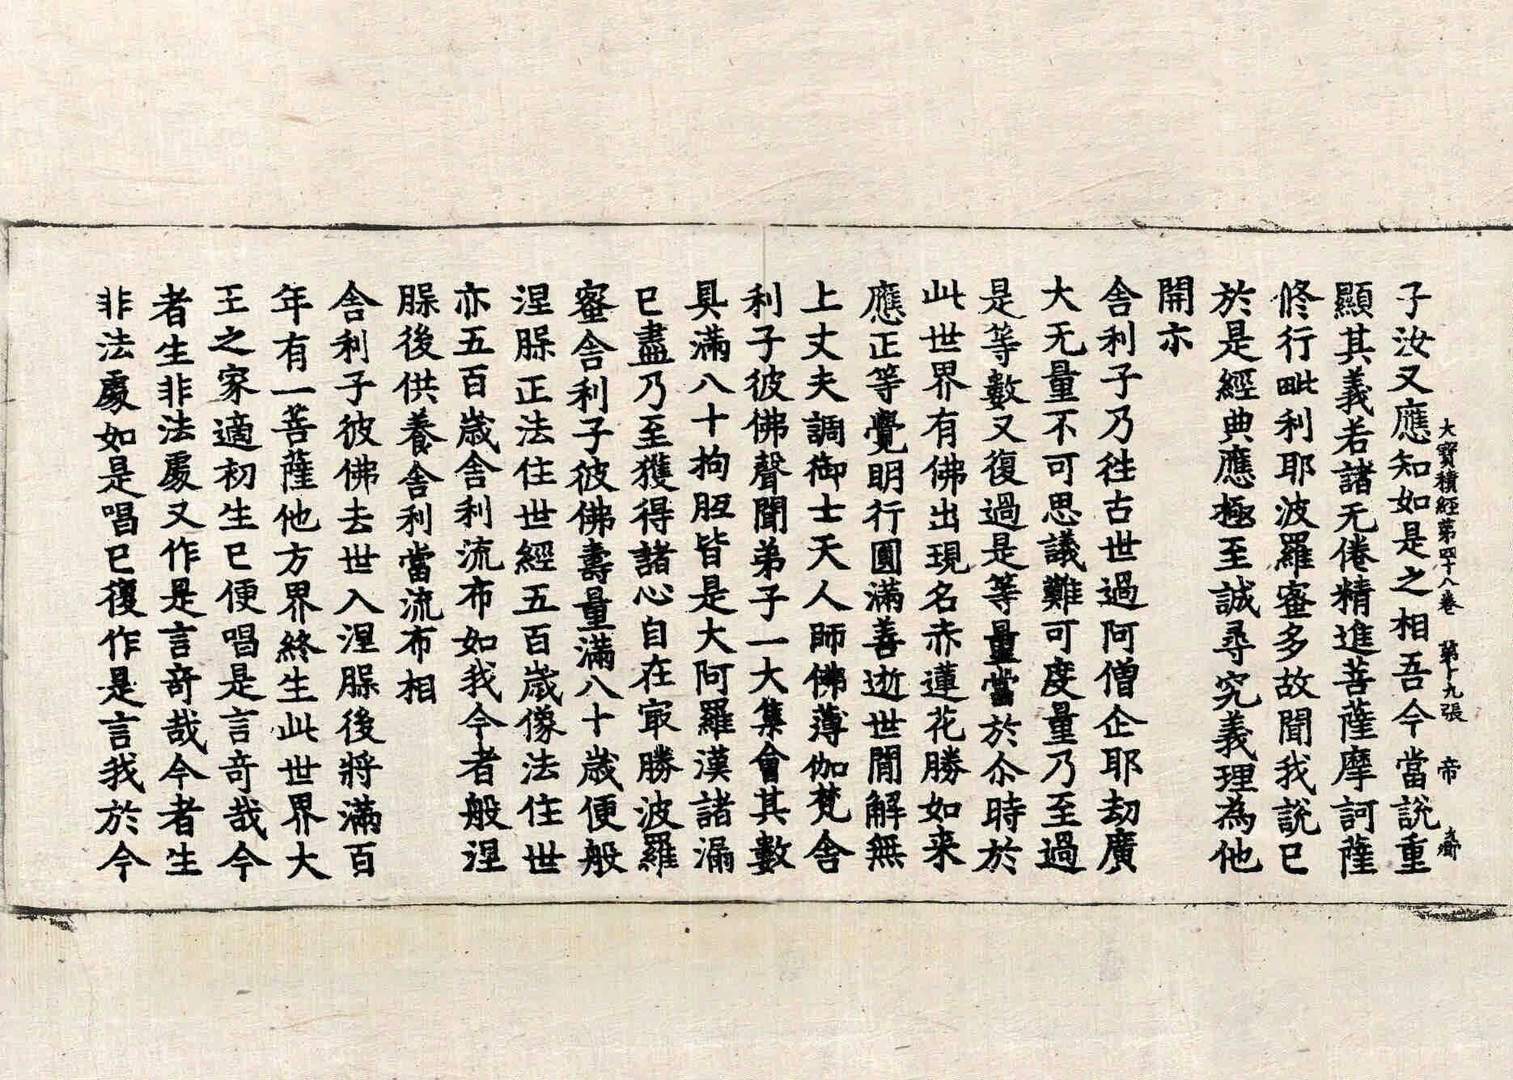 大寶積經第四十八卷 第十九張 帝
子汝又應知如是之相吾今當說重
顯其義若諸无倦精進菩薩摩訶薩
修行毗利耶波羅蜜多故聞我說已
於是經典應極至誠尋究義理為他
開示
舍利子乃往古世過阿僧企耶劫廣
大无量不可思議難可度量乃至過
是等數又復過是等量當於尒時於
此世界有佛出現名赤蓮花勝如来
應正等覺明行圓滿善逝世間解無
上丈夫調御士天人師佛薄伽梵舍
利子彼佛聲聞弟子一大集會其數
具滿八十拘胝皆是大阿羅漢諸漏
已盡乃至獲得諸心自在㝡勝波羅
蜜舍利子彼佛壽量滿八十歲便般
涅槃正法住世經五百歲像法住世
亦五百歲舍利流布如我今者般涅
槃後供養舍利當流布相
舍利子彼佛去世入涅槃後將滿百
年有一菩薩他方界終生此世界大
王之家適初生已便唱是言奇哉今
者生非法處又作是言奇哉今者生
非法處如是唱已復作是言我於今